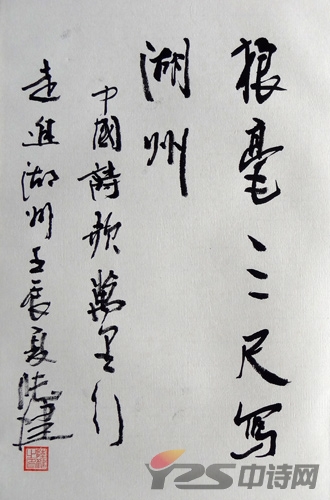 狼毫三尺写
湖州
中國詩歌萬里行
走進湖州壬辰夏陆健
YZS中诗网